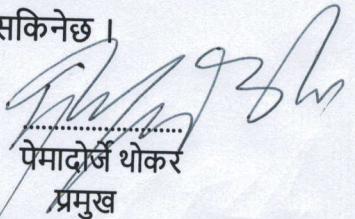 सकिनेछ ।
........................
पेमादोर्जे थोकर
प्रमुख